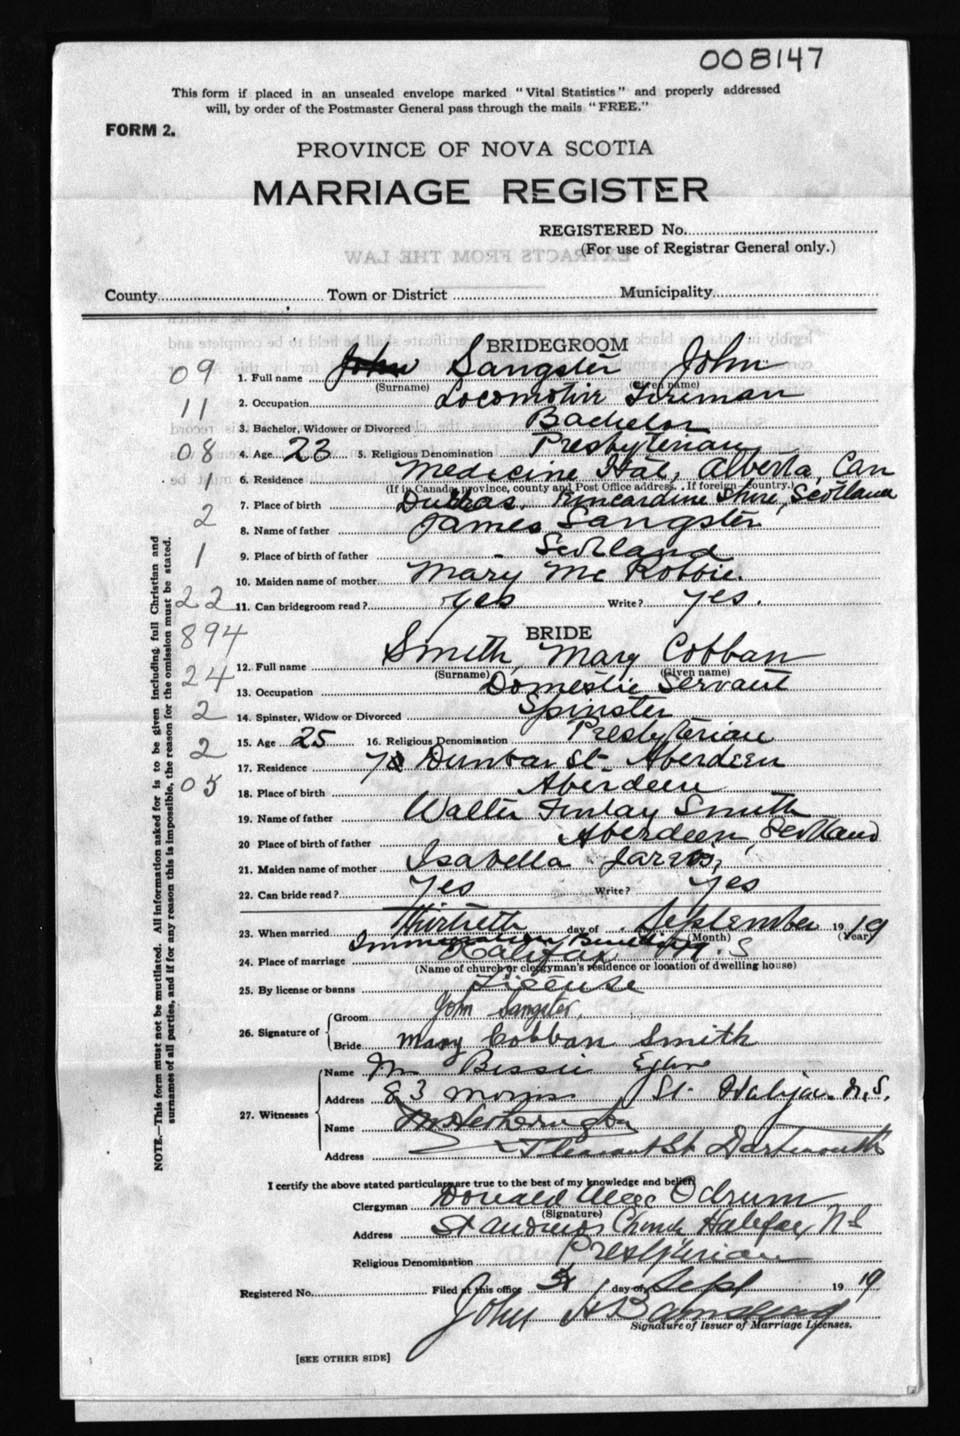 008147
This form if placed in an unsealed envelope marked "Vital Statistics" and properly addressed
will, by order of the Postmaster General pass through the mails "FREE."
FORM 2.
PROVINCE OF NOVA SCOTIA
MARRIAGE REGISTER
REGISTERED No.
(For use of Registrar General only.)
EXTRACTS FROM THE LAW
County Town or District Municipality
BRIDEGROOM
09
1. Full name John Sangster John
(Surname) (Given name)
11
2. Occupation Locomotive Fireman
3. Bachelor, Widower or Divorced Bachelor
08
4. Age 23 5. Religious Denomination Presbyterian
1
6. Residence Medicine Hat, Alberta, Can
(If in Canada, province, county and Post Office address. If foreign country.)
7. Place of birth Kincardine Shire, Scotland
2
8. Name of father James Sangster
1
9. Place of birth of father Scotland
10. Maiden name of mother Mary McRobbie.
22
11. Can bridegroom read? yes Write? yes.
894
BRIDE
12. Full name Smith, Mary Cobban
(Surname) (Given name)
24
13. Occupation Domestic Servant
2
14. Spinster, Widow or Divorced Spinster
2
15. Age 25 16. Religious Denomination Presbyterian
17. Residence Dunbar St. Aberdeen
05
18. Place of birth Aberdeen
19. Name of father Walter Finlay Smith
20 Place of birth of father Aberdeen, Scotland
21. Maiden name of mother Isabella Jarvis,
22. Can bride read? Yes Write? yes
23. When married Thirtieth day of September 1919
(Month) (Year)
Immigration Building
24. Place of marriage Halifax N.S
(Name of church or clergyman's residence or location of dwelling house)
25. By license or banns License
26. Signature of
Groom John Sangster,
Bride Mary Cobban Smith
27. Witnesses
Name M Bessie
Address 83 Morris St. Halifax N.S.
Name M Hetherington
Address Pleasant St Dartmouth
I certify the above stated particulars are true to the best of my knowledge and belief.
Clergyman Donald MacOdrum
(Signature)
Address St Andrews Church Halifax NS
Religious Denomination Presbyterian
Registered No. Filed at this office day of Sept 1919
John H Barnstead
Signature of Issuer of Marriage Licenses.
[SEE OTHER SIDE]
NOTE.—This form must not be mutilated. All information asked for is to be given including full Christian and
surnames of all parties, and if for any reason this is impossible, the reason for the omission must be stated.